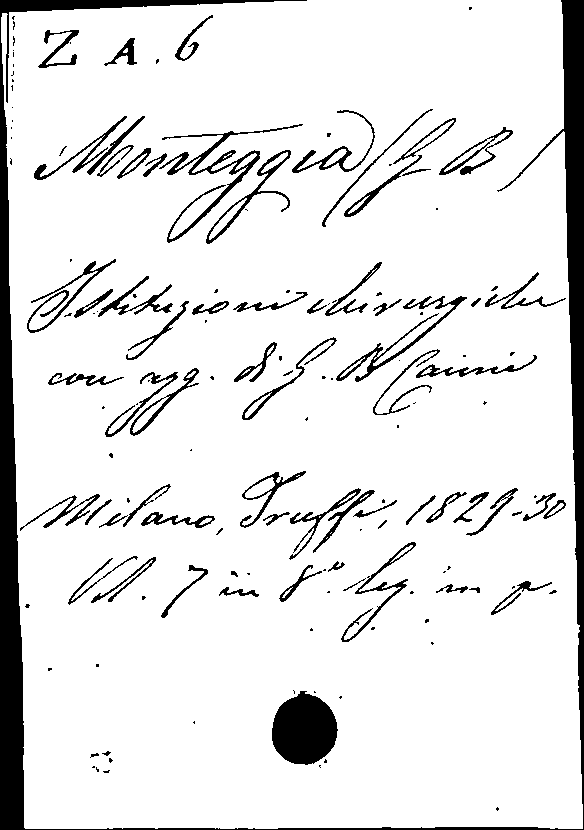 Z A. 6
Monteggia (G B)
Istituzioni chirurgiche
con agg. di G. B Caimi
Milano, Truffi, 1829-30
Vol. 7 in 8° leg. in p.